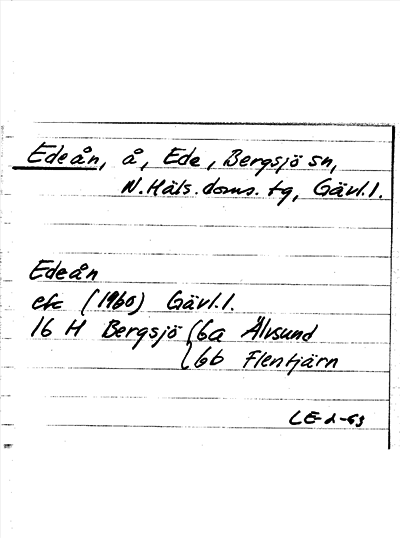 Edeån, å, Ede, Bergsjö sn,
N.Häls.doms.tg, Gävl.l.
Edeån
efc (1960) Gävl.l.
16 H Bergsjö 6a Älvsund
6b Flentjärn